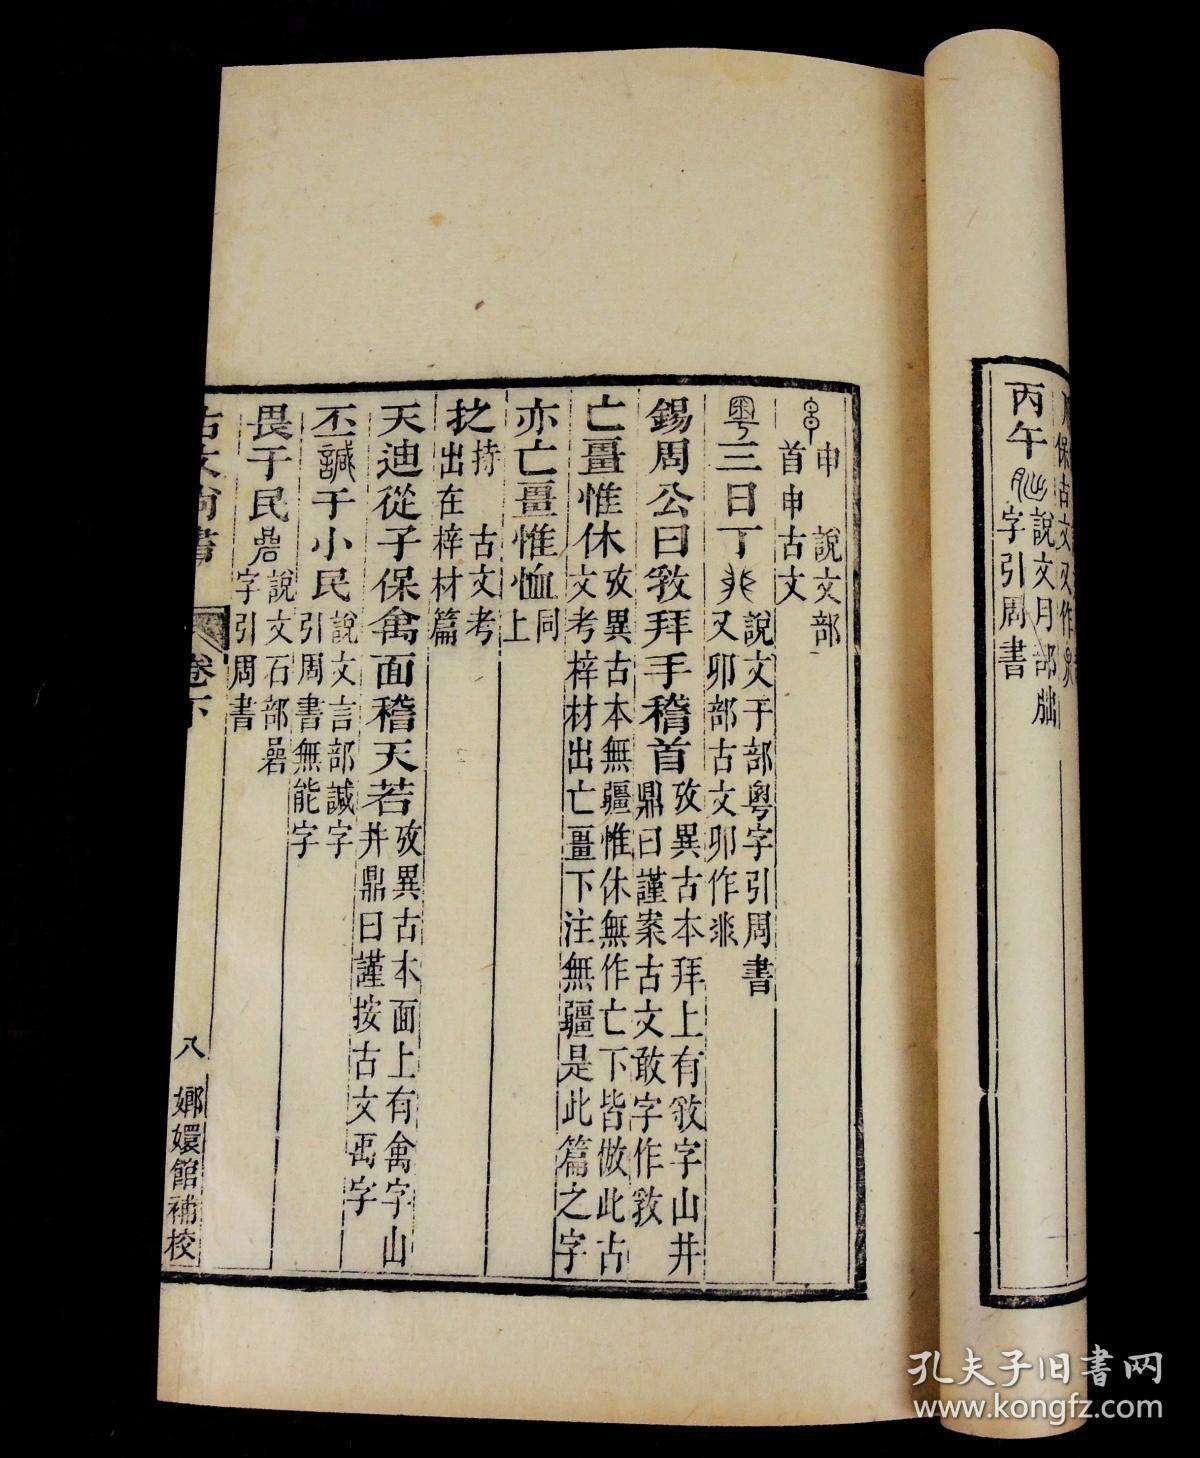 丙午
說文月部朏
字引周書
申 說文部
首申古文
粵三日丁
說文于部粵字引周書
又卯部古文卯作
錫周公曰敨拜手稽首
攷異古本拜上有敨字山井
鼎曰謹案古文敢字作敨
亡畺惟休
攷異古本無疆惟休無作亡下皆倣此古
文考梓材出亡畺下注無疆是此篇之字
亦亡畺惟恤
同
上
持 古文考
出在梓材篇
天迪從子保禽面稽天若
攷異古本面上有禽字山
井鼎曰謹按古文禹字
丕諴于小民
說文言部諴字
引周書無能字
畏于民碞
說文石部碞
字引周書
古文尚書
卷下
八
嫏嬛館補校
孔夫子旧书网
www.kongfz.com